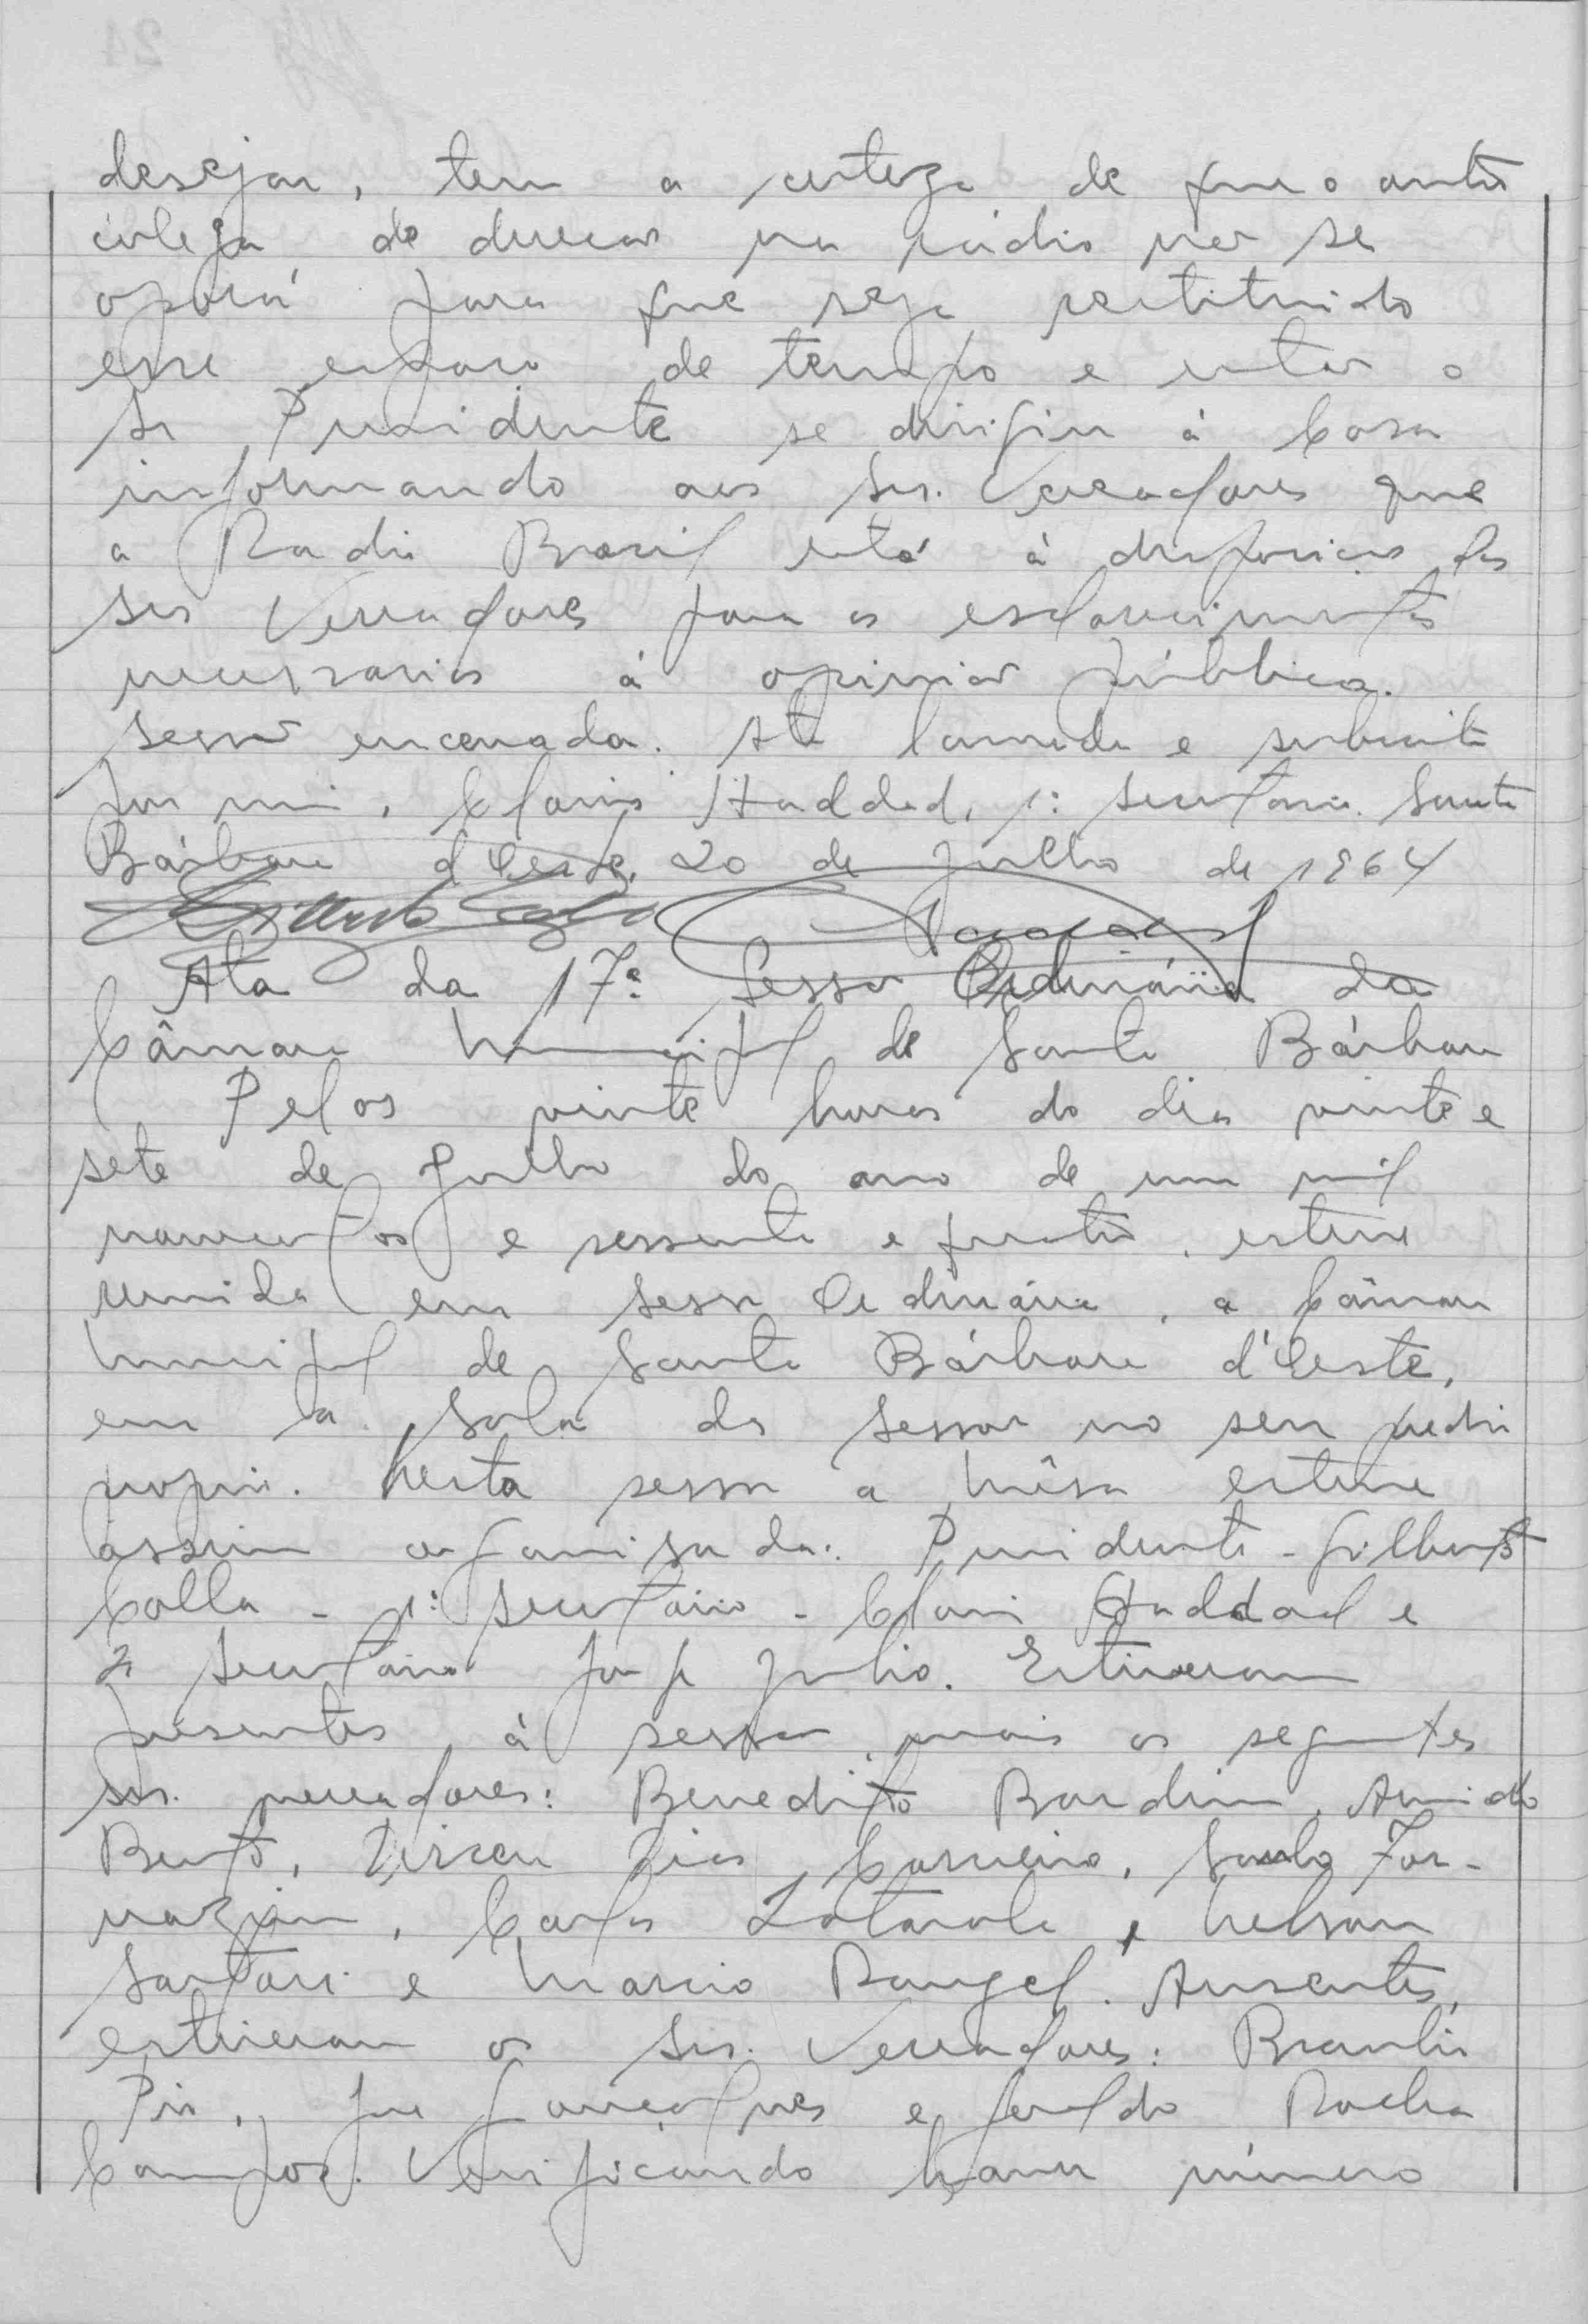 desejar, tem a certeza de que o outro
colega de direção na rádio não se
oporá para que seja restituido
esse espaço de tempo e então o
Sr Presidente se dirigiu à Casa
informando aos Srs. Vereadores que
a Radio Brasil está à disposição dos
Srs Vereadores para os esclarecimentos
necessarios à opinião pública.
Sessão encerrada. Ata lavrada e subscrita
por mim, Clovis Haddad, 1º secretario. Santa
Bárbara d'Oeste, 20 de Julho de 1964
Ata da 17ª Sessão Ordinária da
Câmara Municipal de Santa Bárbara
Pelas vinte horas do dia vinte e
sete de Julho do ano de um mil
novecentos e sessenta e quatro, esteve
reunida em sessão Ordinária, a Câmara
Municipal de Santa Bárbara d'Oeste,
em a sala da sessão no seu predio
proprio. Nesta sessão a mêsa esteve
assim organisada: Presidente - Gilberto
Colla - 1º Secretário - Clovis Haddad e
2º Secretario José Julio. Estiveram
presentes à sessão mais os seguintes
srs. vereadores: Benedito Bardim, Amido
Bento, Dirceu Dias Carneiro, Saulo For-
nazim, Carlos Lotarole, Nelson
Sartori e Marcio Rangel. Ausentes,
estiveram os Srs. Vereadores: Braulio
Pio, José Gonçalves e Geraldo Rocha
Campos. Verificando haver número